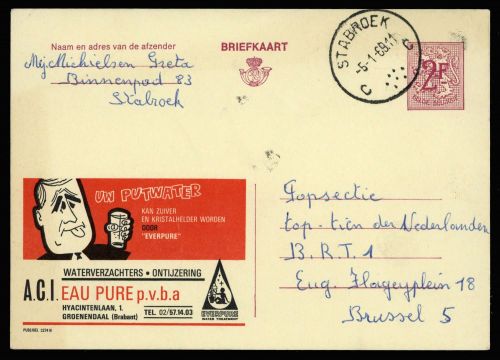 Naam en adres van de afzender
Mej. Michielsen Greta
Binnenpad 83
Stabroek
BRIEFKAART
STABROEK
-5-1-68.11
C G
2F
UW PUTWATER
KAN ZUIVER
EN KRISTALHELDER WORDEN
DOOR
"EVERPURE"
WATERVERZACHTERS • ONTIJZERING
A.C.I. EAU PURE p.v.b.a
HYACINTENLAAN, 1.
GROENENDAAL (Brabant)
TEL. 02/57.14.03
EVERPURE
WATER TREATMENT
Topsectie
top-tien der Nederlanden
B.R.T 1
Eug. Flageyplein 18
Brussel 5